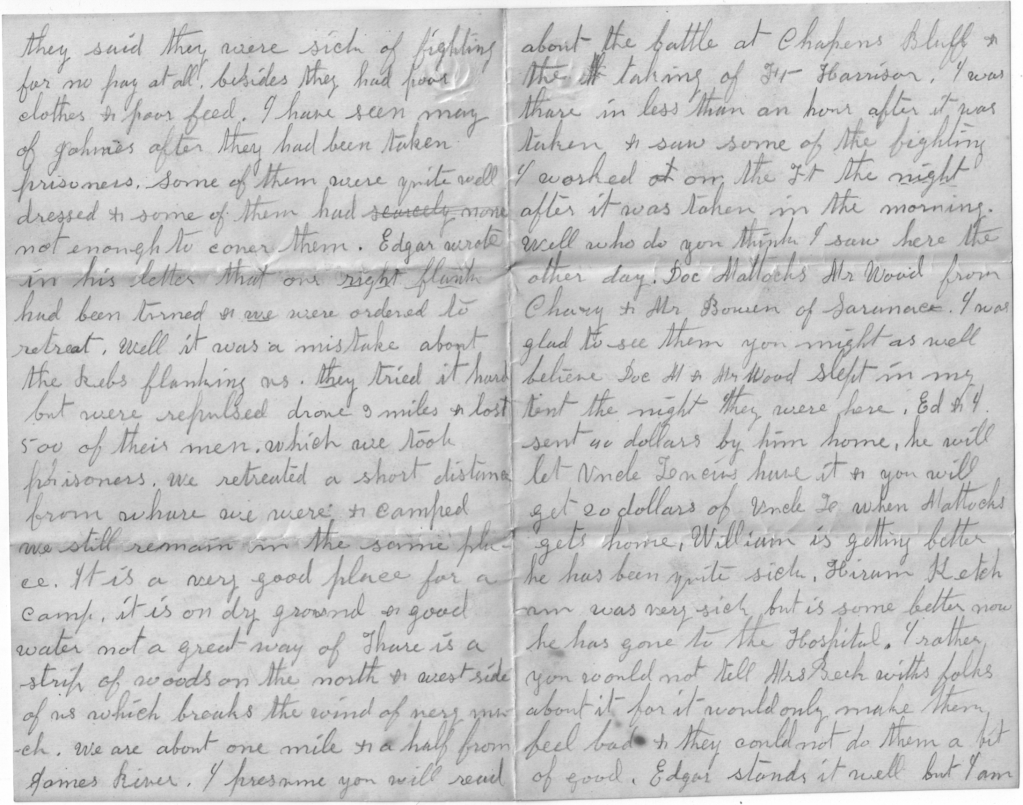 they said they were sick of fighting
for no pay at all. besides they had poor
clothes & poor feed. I have seen may
of Johnies after they had been taken
prisoners. some of them were quite well
dressed & some of them had scarcely none
not enough to coner them. Edgar wrote
in his letter that our right flank
had been turned & we were ordered to
retreat. Well it was a mistake about
the Rebs flanking us. they tried it hard
but were repulsed drove 3 miles & lost
500 of their men. which we took
prisoners. We retreated a short distance
from whare we were & camped
we still remain in the same pla-
ce. It is a very good place for a
camp. it is on dry ground & good
water not a great way of Thare is a
strip of woods on the north & west side
of us which breaks the wind of very mu-
-ch. We are about one mile & a half from
James River. I presume you will read
about the battle at Chapens Bluff &
the taking of Ft Harrison. I was
thare in less than an hour after it was
taken & saw some of the fighting
I worked at on the Ft the night
after it was taken in the morning.
Well who do you think I saw here the
other day. Doc Mattocks Mr Wood from
Chazy & Mr Bowen of Saranace. I was
glad to see them you might as well
believe Doc M & Mr Wood slept in my
tent the night they were here. Ed & I
sent 40 dollars by him home, he will
let Uncle have it & you will
get 20 dollars of Uncle when Mattocks
gets home. William is getting better
he has been quite sick. Hiram Ketch
am was very sick but is some better now
he has gone to the Hospital. I rather
you would not tell Mrs Beck withs folks
about it for it would only make them
feel bad & they could not do them a bit
of good. Edgar stands it well but I am